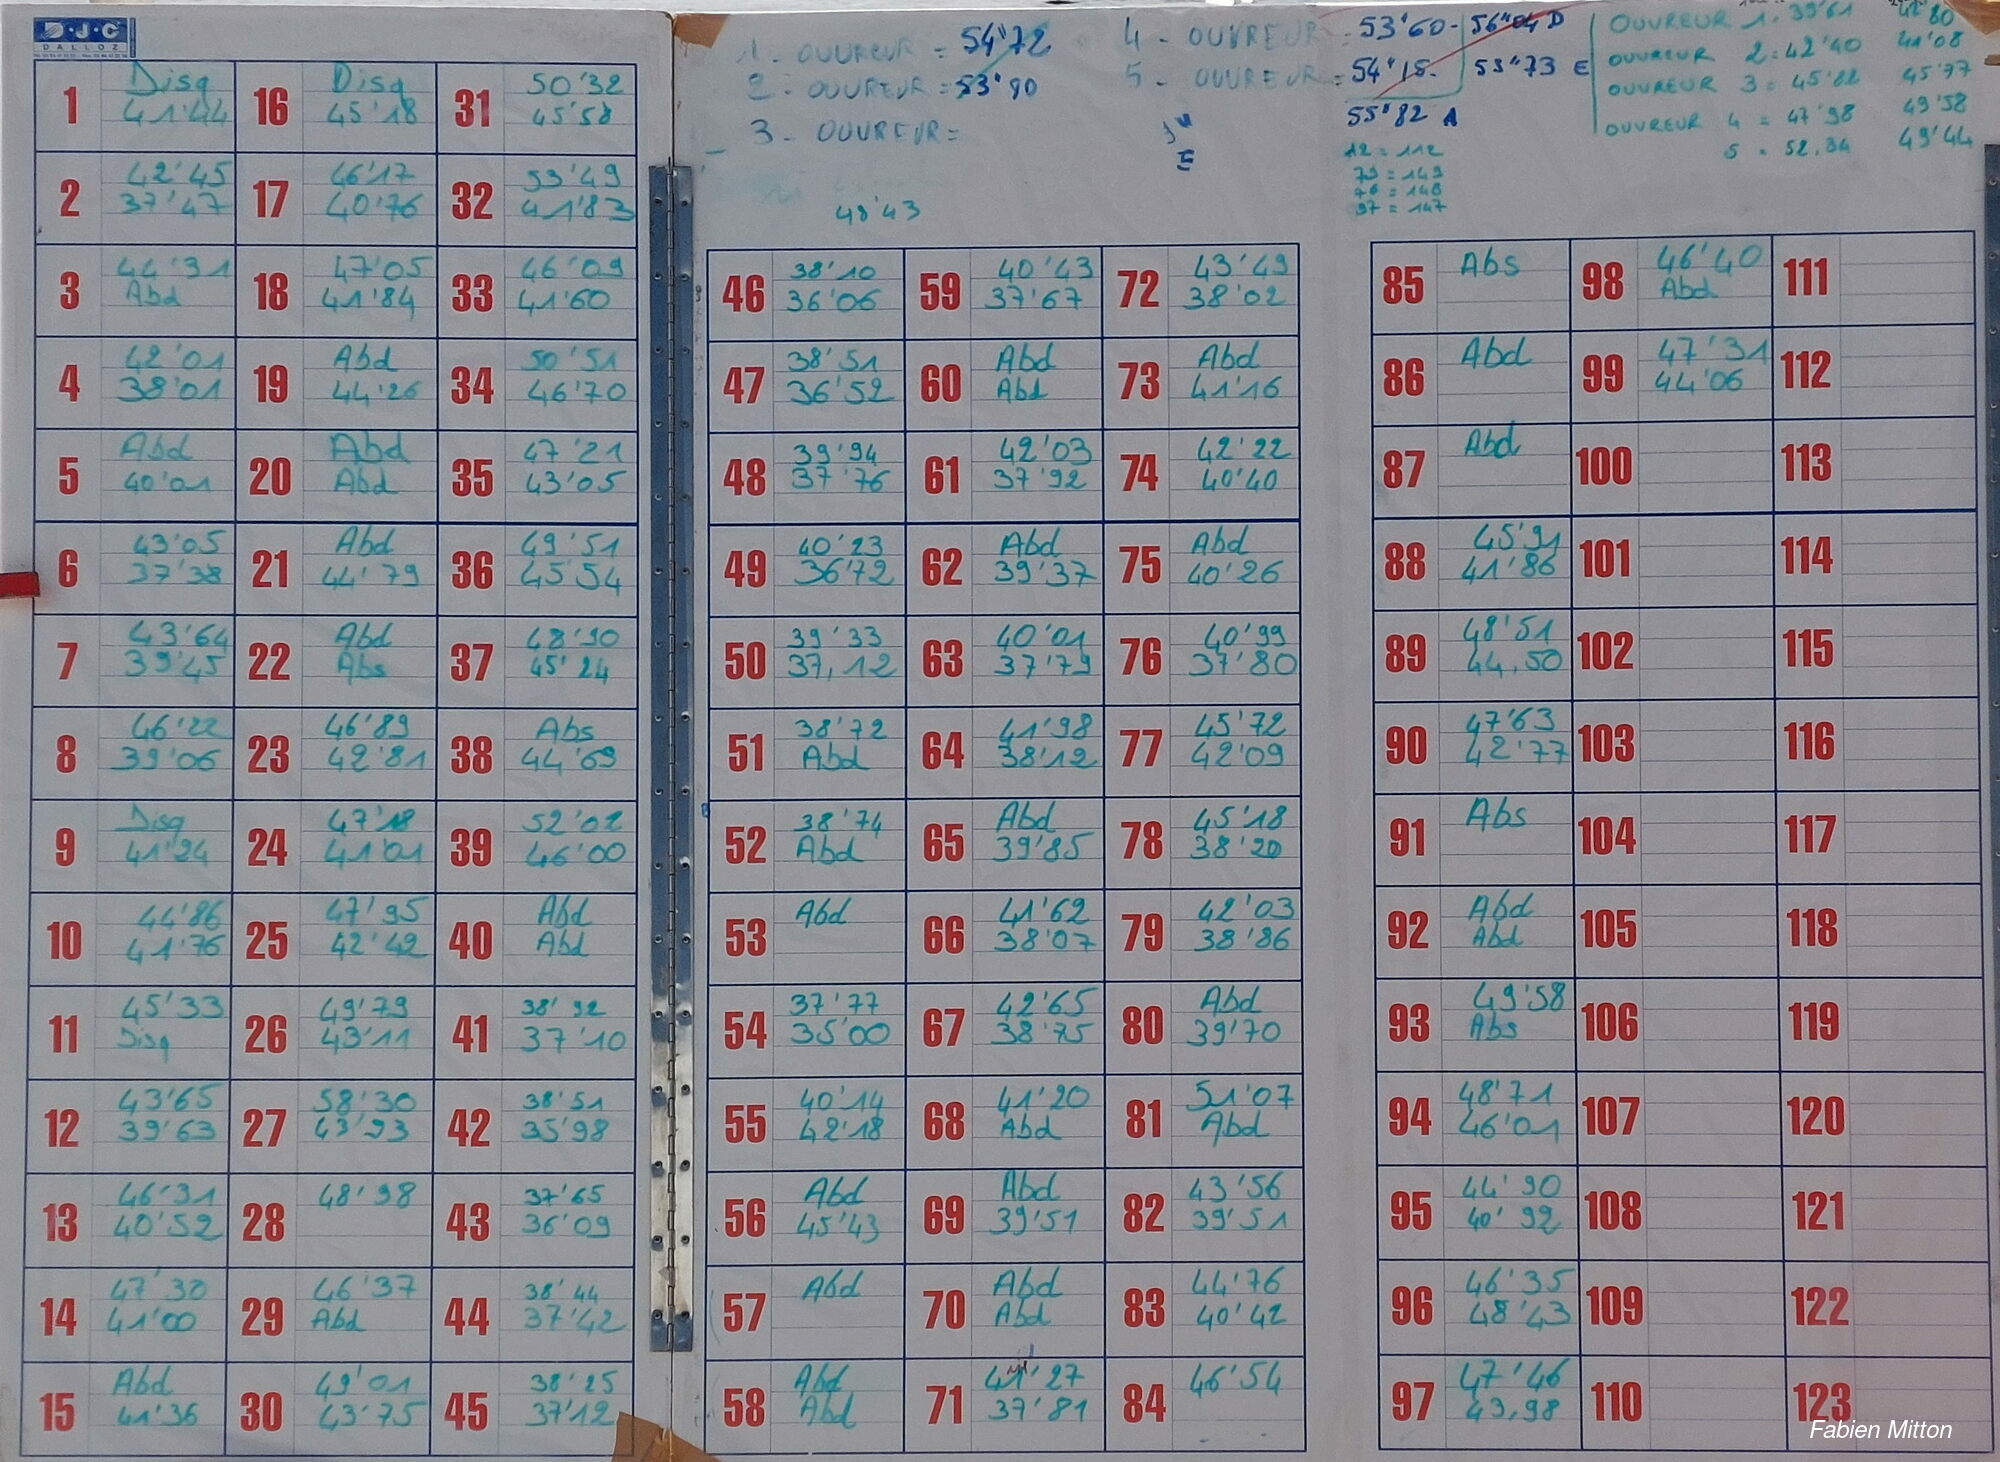 D·J·C
DALLOZ
1 - OUVREUR = 54"72
2 - OUVREUR = 53"90
3 - OUVREUR =
4 - OUVREUR = 53"60 - 56"04 D
5 - OUVREUR = 54"15 - 53"73 E
55"82 A
E
12 = 112
79 = 149
76 = 148
97 = 147
48'43
OUVREUR 1 = 39'61 42'80
OUVREUR 2 = 42'40 41'08
OUVREUR 3 = 45'82 45'77
OUVREUR 4 = 47'98 49'58
5 = 52,34 49'44
1 Disq 41'44
2 42'45 37'47
3 44'31 Abd
4 42'01 38'01
5 Abd 40'01
6 43'05 37'38
7 43'64 39'45
8 46'22 39'06
9 Disq 41'24
10 44'86 41'76
11 45'33 Disq
12 43'65 39'63
13 46'31 40'52
14 47'30 41'00
15 Abd 41'36
16 Disq 45'18
17 46'17 40'76
18 47'05 41'84
19 Abd 44'26
20 Abd Abd
21 Abd 44'79
22 Abd Abs
23 46'89 42'81
24 47'18 41'01
25 47'95 42'42
26 49'79 43'11
27 58'30 43'93
28 48'98
29 46'37 Abd
30 49'01 43'75
31 50'32 45'58
32 53'49 41'83
33 46'09 41'60
34 50'51 46'70
35 47'21 43'05
36 49'51 45'54
37 48'90 45'24
38 Abs 44'69
39 52'02 46'00
40 Abd Abd
41 38'92 37'10
42 38'51 35'98
43 37'65 36'09
44 38'44 37'42
45 38'25 37'12
46 38'10 36'06
47 38'51 36'52
48 39'94 37'76
49 40'23 36'72
50 39'33 37,12
51 38'72 Abd
52 38'74 Abd
53 Abd
54 37'77 35'00
55 40'14 42'18
56 Abd 45'43
57 Abd
58 Abd Abd
59 40'43 37'67
60 Abd Abd
61 42'03 37'92
62 Abd 39'37
63 40'01 37'79
64 41'98 38'12
65 Abd 39'85
66 41'62 38'07
67 42'65 38'75
68 41'20 Abd
69 Abd 39'51
70 Abd Abd
71 41'27 37'81
72 43'49 38'02
73 Abd 41'16
74 42'22 40'40
75 Abd 40'26
76 40'99 37'80
77 45'72 42'09
78 45'18 38'20
79 42'03 38'86
80 Abd 39'70
81 51'07 Abd
82 43'56 39'51
83 44'76 40'42
84 46'54
85 Abs
86 Abd
87 Abd
88 45'91 41'86
89 48'51 44,50
90 47'63 42'77
91 Abs
92 Abd Abd
93 49'58 Abs
94 48'71 46'01
95 44'90 40'92
96 46'35 48'43
97 47'46 43,98
98 46'40 Abd
99 47'31 44'06
100
101
102
103
104
105
106
107
108
109
110
111
112
113
114
115
116
117
118
119
120
121
122
123
Fabien Mitton